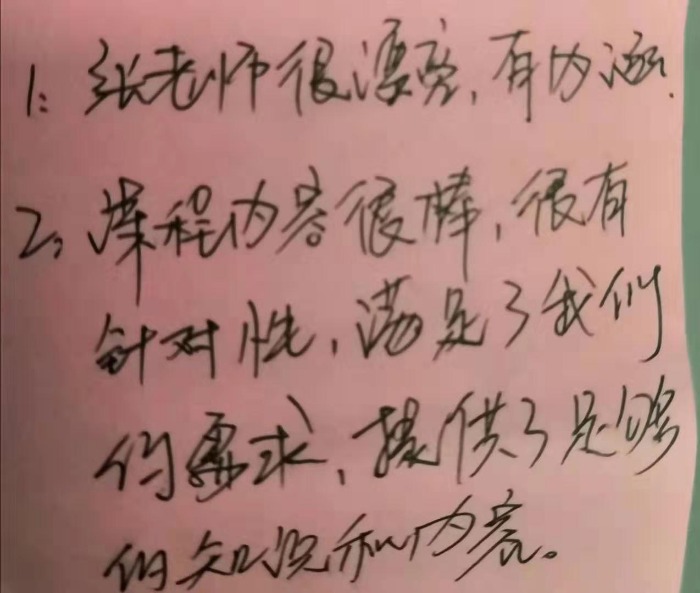 1: 张老师很漂亮，有内涵.
2, 课程内容很棒，很有
针对性，满足了我们
的需求，提供了足够
的知识和内容。